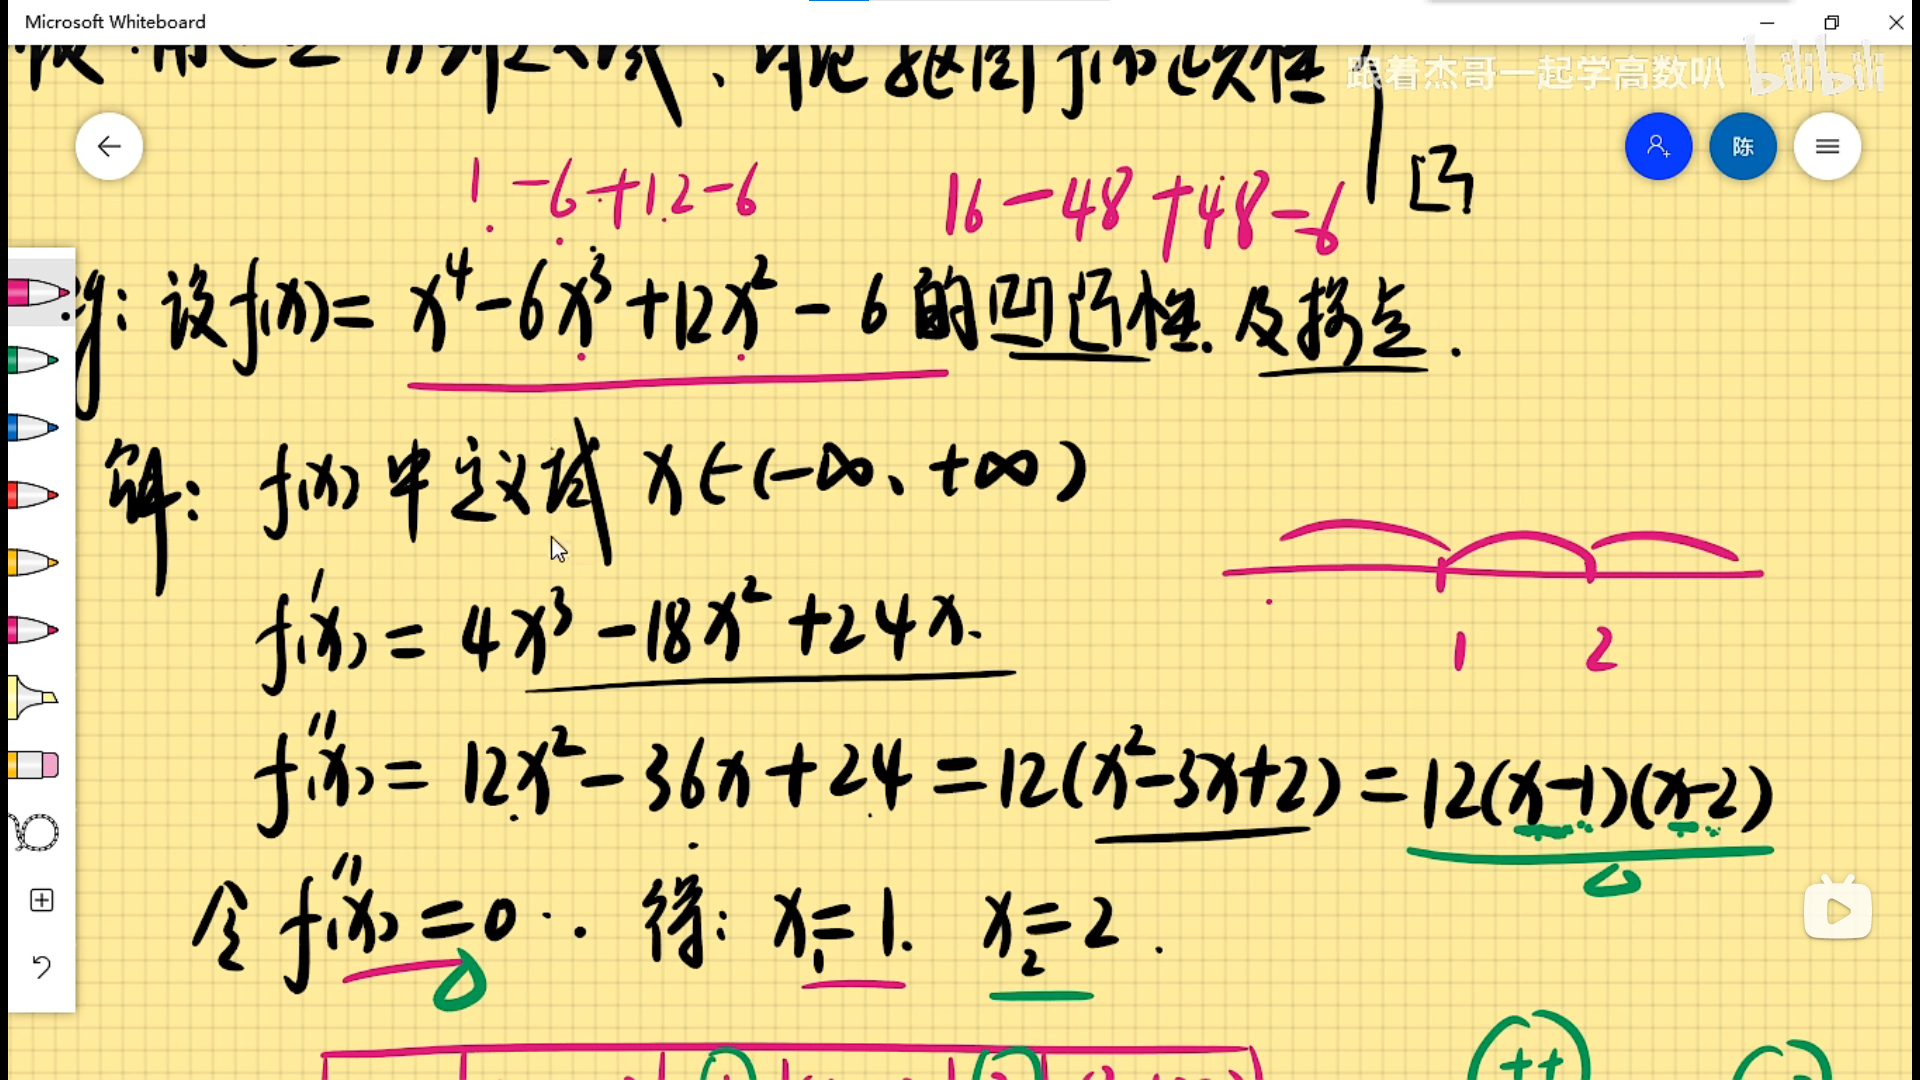 Microsoft Whiteboard
跟着杰哥一起学高数叭 bilibili
陈
凸
1-6+12-6 16-48+48-6
设f(x)= x⁴-6x³+12x²-6 的凹凸性.及拐点.
解: f(x) 中定义域 x∈(-∞、+∞)
f'(x) = 4x³-18x²+24x.
1 2
f''(x) = 12x²-36x+24 = 12(x²-3x+2) = 12(x-1)(x-2)
令 f''(x) = 0. 得: x₁=1. x₂=2.
++